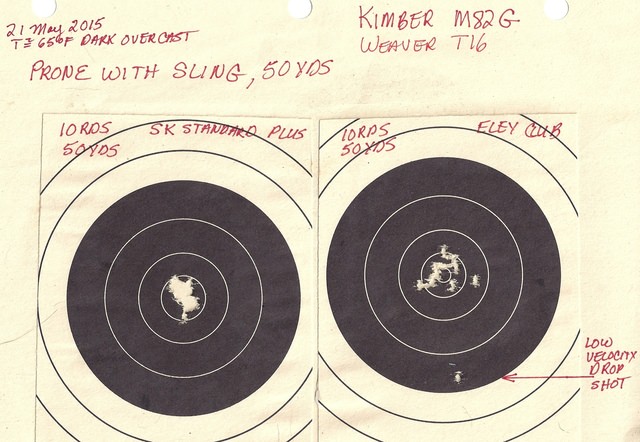 21 May 2015
T≅65°F DARK OVERCAST
KIMBER M82G
WEAVER T16
PRONE WITH SLING, 50 YDS
10 RDS SK STANDARD PLUS
50 YDS
10 RDS ELEY CLUB
50 YDS
LOW
VELOCITY
DROP
SHOT